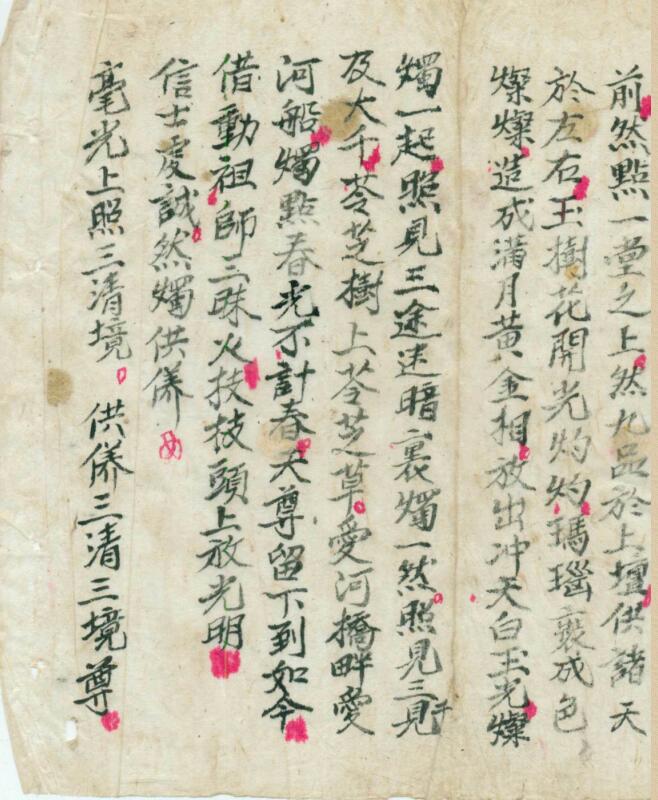 前然點一壹之上然九品於上壇供諸天
於左右玉樹花開光灼灼瑪瑙裹成色
燦燦造成滿月黃金相放出冲天白玉光燦
燭一起照見三途迷暗裏燭一然照見三見千
及大千苓芝樹上苓芝草愛河橋畔愛
河船燭點春光不計春天尊留下到如今
借動祖師三昧火技枝頭上放光明
信士虔誠然燭供养
毫光上照三清境 供养三清三境尊